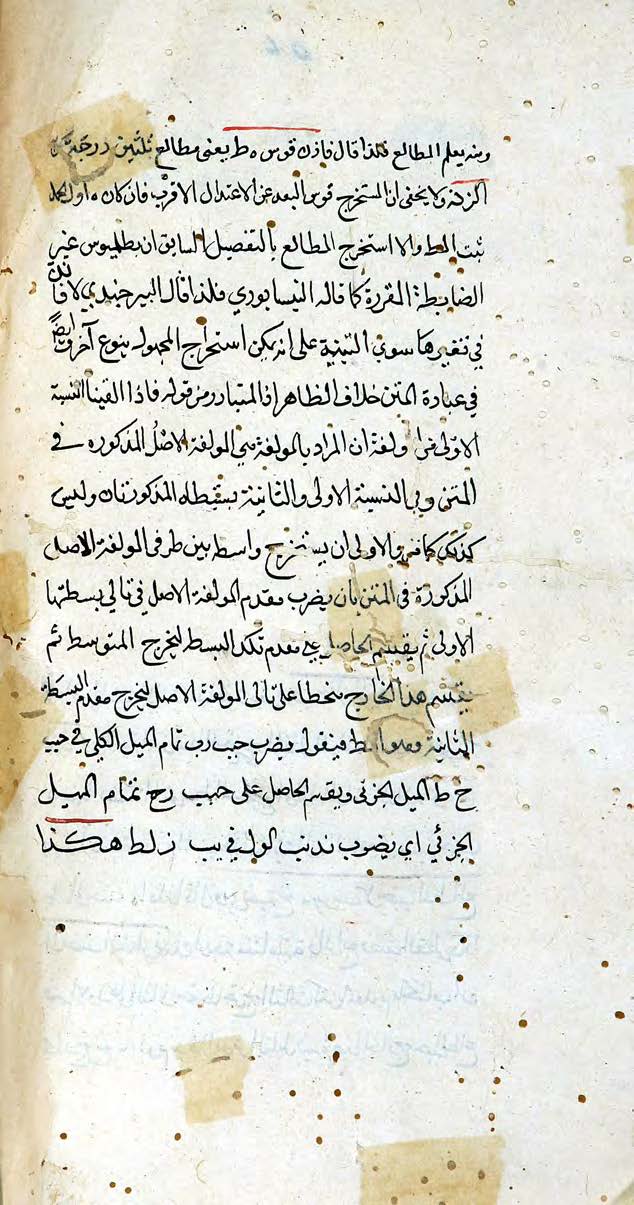 ومنه يعلم المطالع فلذا قال فاذن قوس ه ط يعني مطالع ثلثين درجة
ولا يخفى ان المستخرج قوس البعد عن الاعتدال الاقرب فان كان ه اول الحمل
ثبت المط والا استخرج المطالع بالتفصيل السابق ان بطلميوس غير
الضابطة المقررة كما قاله النيسابوري فلذا قال البيرجندي لا فائدة
في تغيرها سوى التنبيه على انه يمكن استخراج المجهول بنوع آخر وايضا
في عبادة المتن خلاف الظاهر اذ المتبادر من قوله فاذا القينا النسبة
الاولى من ولفة ان المراد بالمولفة هي المولفة الاصل المذكوره في
المتن وهي النسبة الاولى والثانية بسيطتاه المذكورتان وليس
كذلك كما مر والاولى ان يستخرج واسطه بين طرفى المولفة الاصل
المذكورة في المتن بان يضرب مقدم المولفة الاصل في تالي بسيطتها
الاولى ثم يقسم الحاصل على مقدم تلك البسيط ليخرج المتوسط ثم
يقسم هذا الخارج منحطا على تالى المولفة الاصل ليخرج مقدم البسيطة
الثانية فنقول يضرب جيب رب تمام الميل الكلي في جيب
ح ط الميل الجزئى ويقسم الحاصل على جيب رح تمام الميل
الجزئي اي يضرب ند نب في يب زلط هكذا